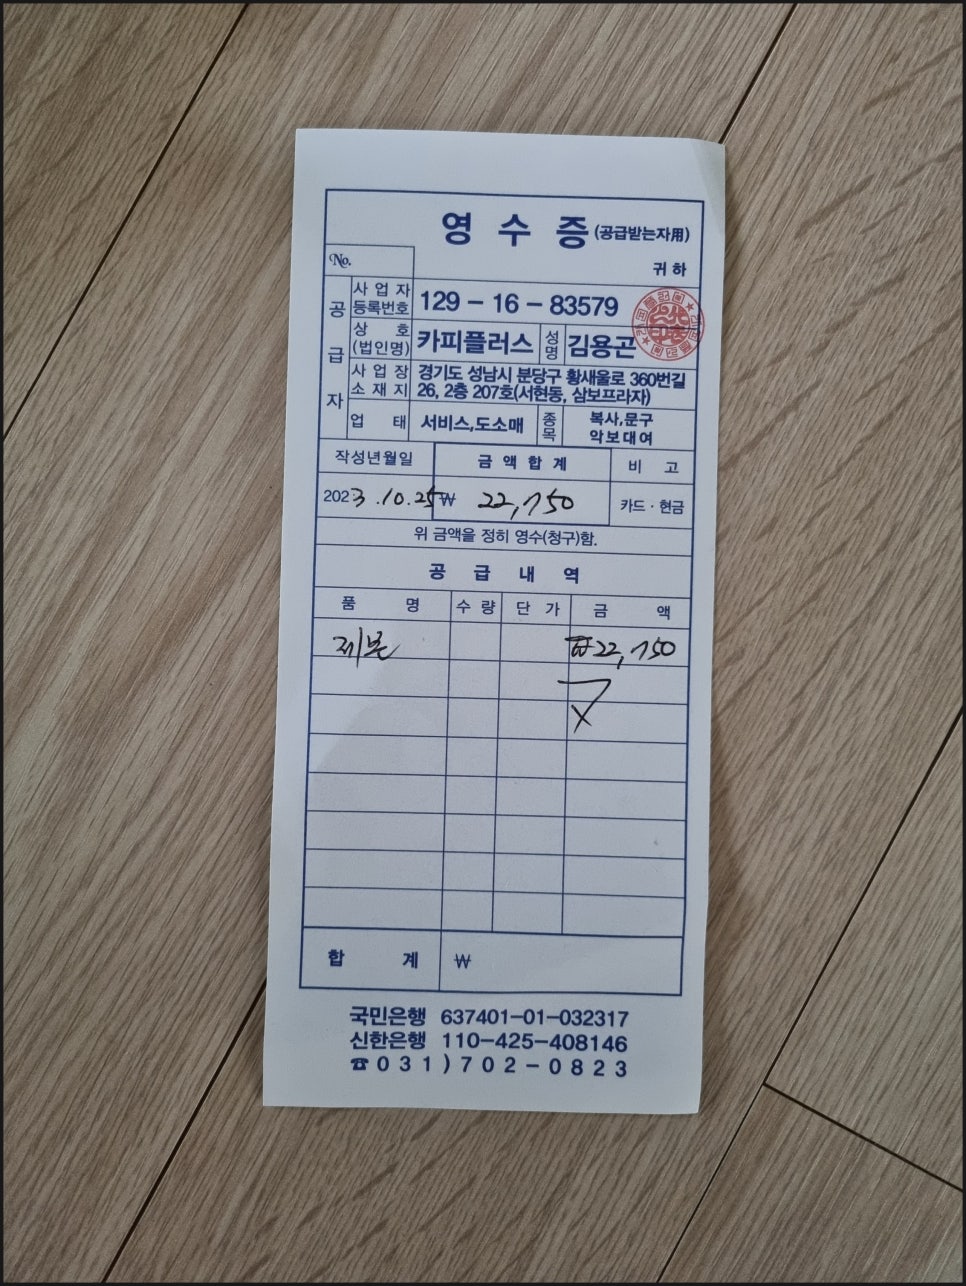 영 수 증 (공급받는자用)
No.
귀 하
공급자
사 업 자 등록번호 129 - 16 - 83579
상 호 (법인명) 카피플러스 성명 김용곤
사 업 장 소 재 지 경기도 성남시 분당구 황새울로 360번길
26, 2층 207호(서현동, 삼보프라자)
업 태 서비스,도소매 종목 복사,문구
악보대여
작성년월일 금 액 합 계 비 고
2023.10.25 ₩ 22,150 카드 · 현금
위 금액을 정히 영수(청구)함.
공 급 내 역
품 명 수 량 단 가 금 액
제본 ₩22,150
합 계 ₩
국민은행 637401-01-032317
신한은행 110-425-408146
☎031)702-0823